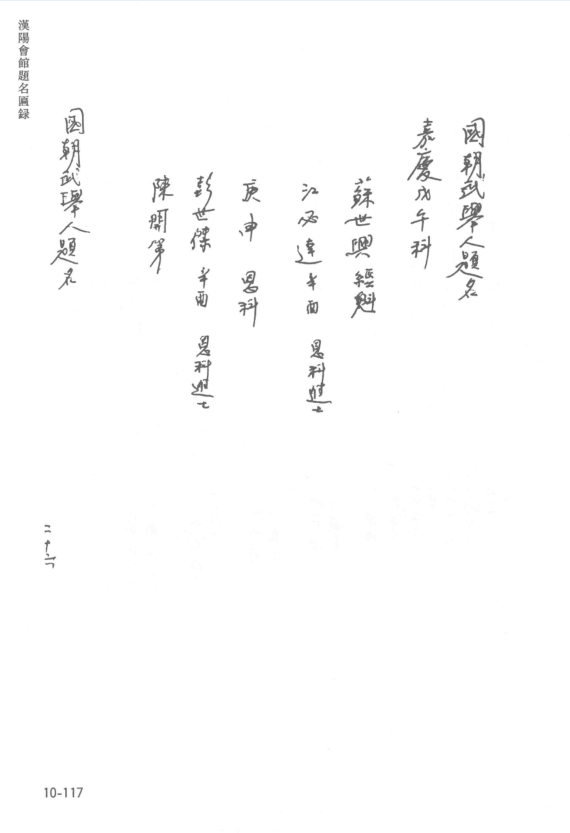 漢陽會館題名匾録
國朝武舉人題名
嘉慶戊午科
蘇世興 經魁
江必達 辛酉 恩科進士
庚申 恩科
彭世傑 辛酉 恩科進士
陳開第
國朝武舉人題名
二十六
10-117